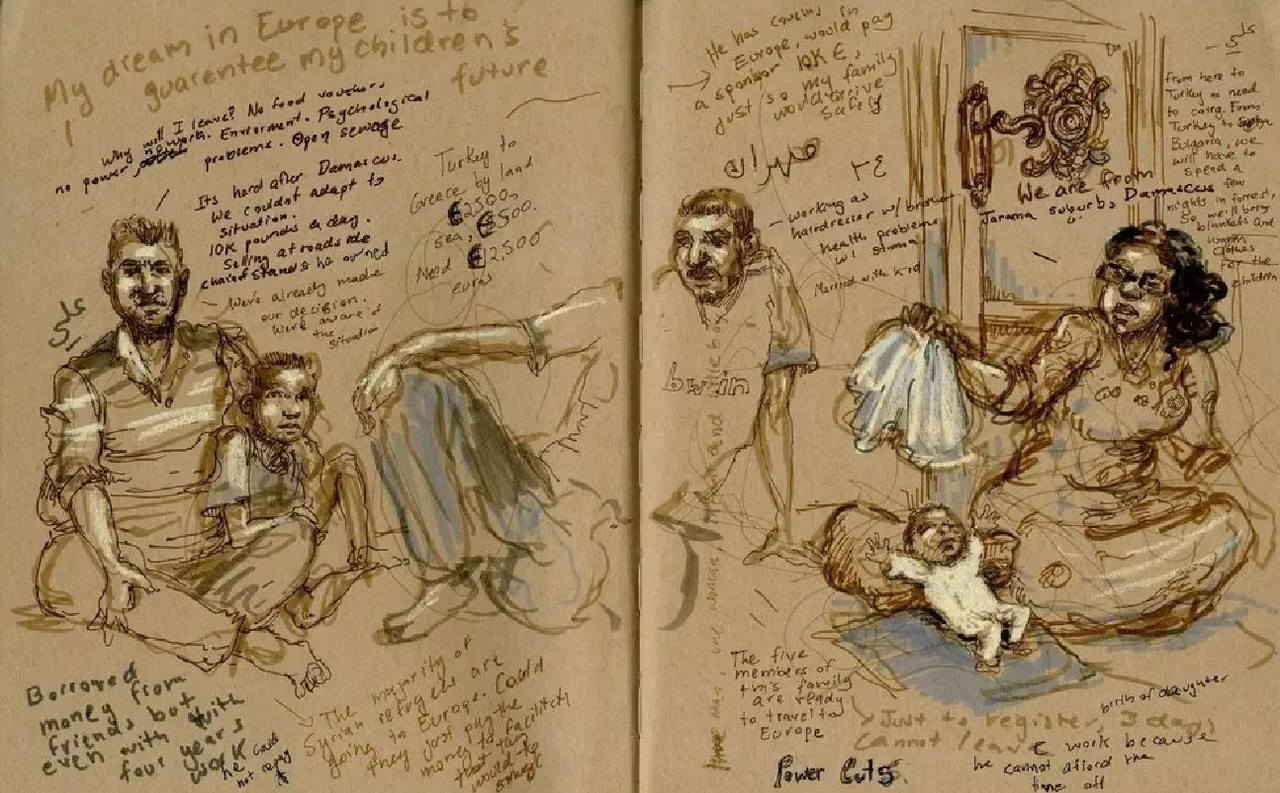 My dream in Europe is to
guarentee my children's
future
Why will I leave? No food vouchers
no power, no work. Enviorment. Psychological
problems. Open sewage
Its hard after Damascus.
We couldnt adapt to
situation.
10K pounds a day.
Selling at roadside
stands he owned
We've already made
our decision.
We're aware of
the situation
Turkey to
Greece by land
€2500,
sea, €2500.
Need €12,500
euros
Borrowed
money from
friends but
even with
four years
work
he could
not repay
it
The majority of
Syrian refugees are
going to Europe. Could
they just pay the
money to facilitate
that they
would to
smugglers
He has cousins in
Europe, would pay
a sponsor 10K E,
just so my family
would arrive
safely
٣٤
working as
hairdresser w/ brother
health problems
w/ stomach
Married with kid
brain
We are from
Jarama suburbs Damascus
from here to
Turkey no need
to carry. From
Turkey to
Bulgaria, we
will have to
spend a
few
nights in forrest,
So, we'll bring
blankets and
warm
clothes
for the
children
The five
members of
this family
are ready
to travel to
Europe
Power Cuts.
birth of daughter
Just to register, 3 days,
cannot leave work because
he cannot afford the
time off